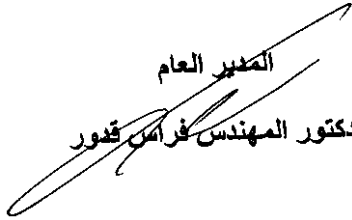 المدير العام
دكتور المهندس فراس قدور